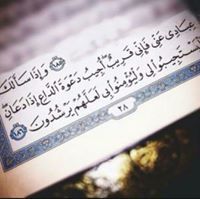 وَإِذَا سَأَلَكَ
عِبَادِي عَنِّي فَإِنِّي قَرِيبٌ أُجِيبُ دَعْوَةَ الدَّاعِ إِذَا دَعَانِ
لْيَسْتَجِيبُوا لِي وَلْيُؤْمِنُوا بِي لَعَلَّهُمْ يَرْشُدُونَ
٢٨